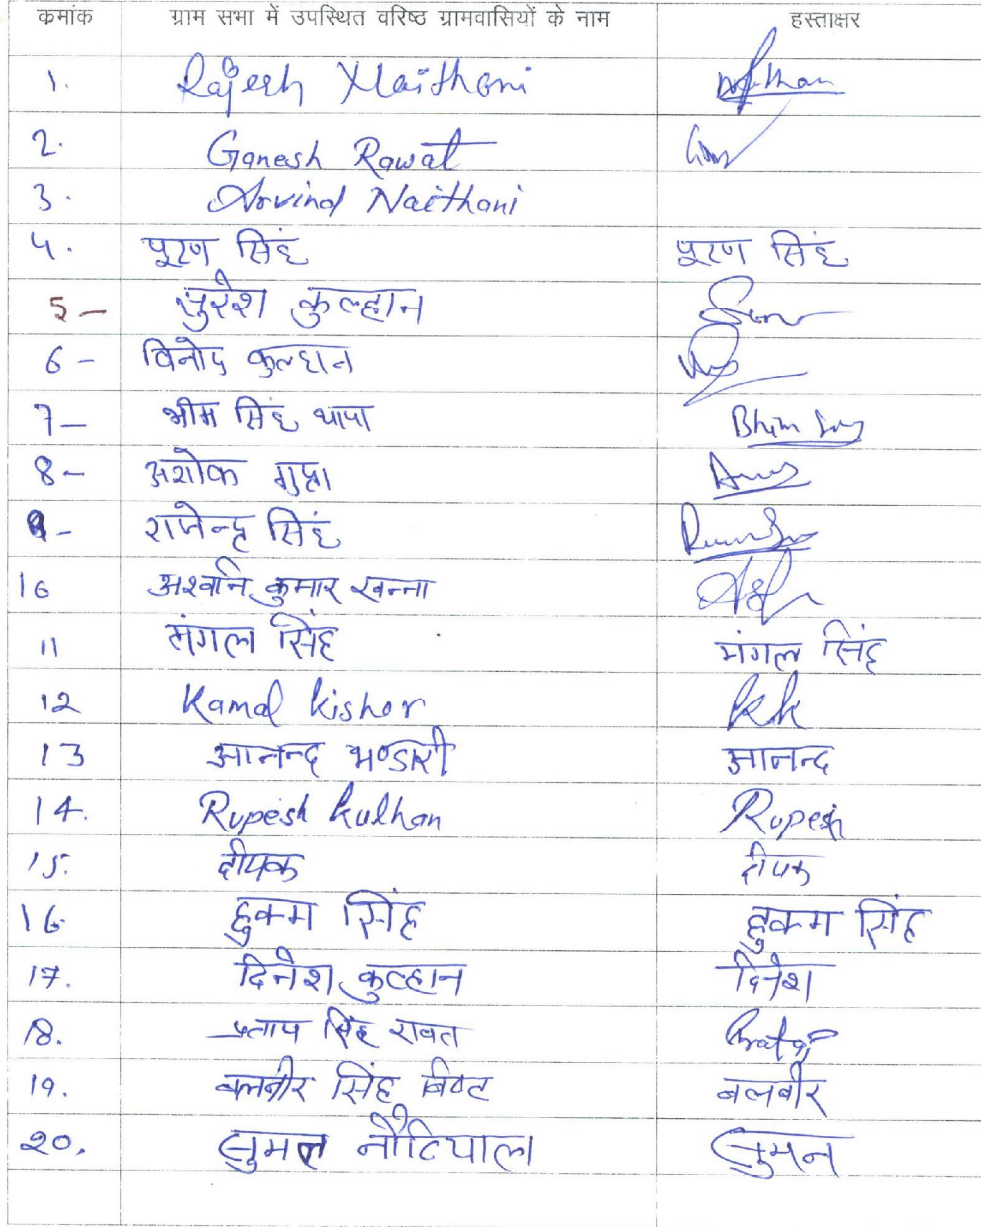 कमांक ग्राम सभा में उपस्थित वरिष्ठ ग्रामवासियों के नाम हस्ताक्षर
1. Rajesh Naithani
2. Ganesh Rawat
3. Arvind Naithani
4. पूरण सिंह पूरण सिंह
5- सुरेश कुल्हान
6- विनोद कुल्हान
7- भीम सिंह थापा Bhim
8- अशोक गुप्ता
9- राजेन्द्र सिंह
10 अश्वनि कुमार खन्ना
11 मंगल सिंह मंगल सिंह
12 Kamal Kishor KK
13 आनन्द भण्डारी आनन्द
14. Rupesh Kulhan Rupesh
15. दीपक दीपक
16. हुकम सिंह हुकम सिंह
17. दिनेश कुल्हान दिनेश
18. प्रताप सिंह रावत Pratap
19. बलबीर सिंह बिष्ट बलबीर
20. सुमन नौटियाल सुमन